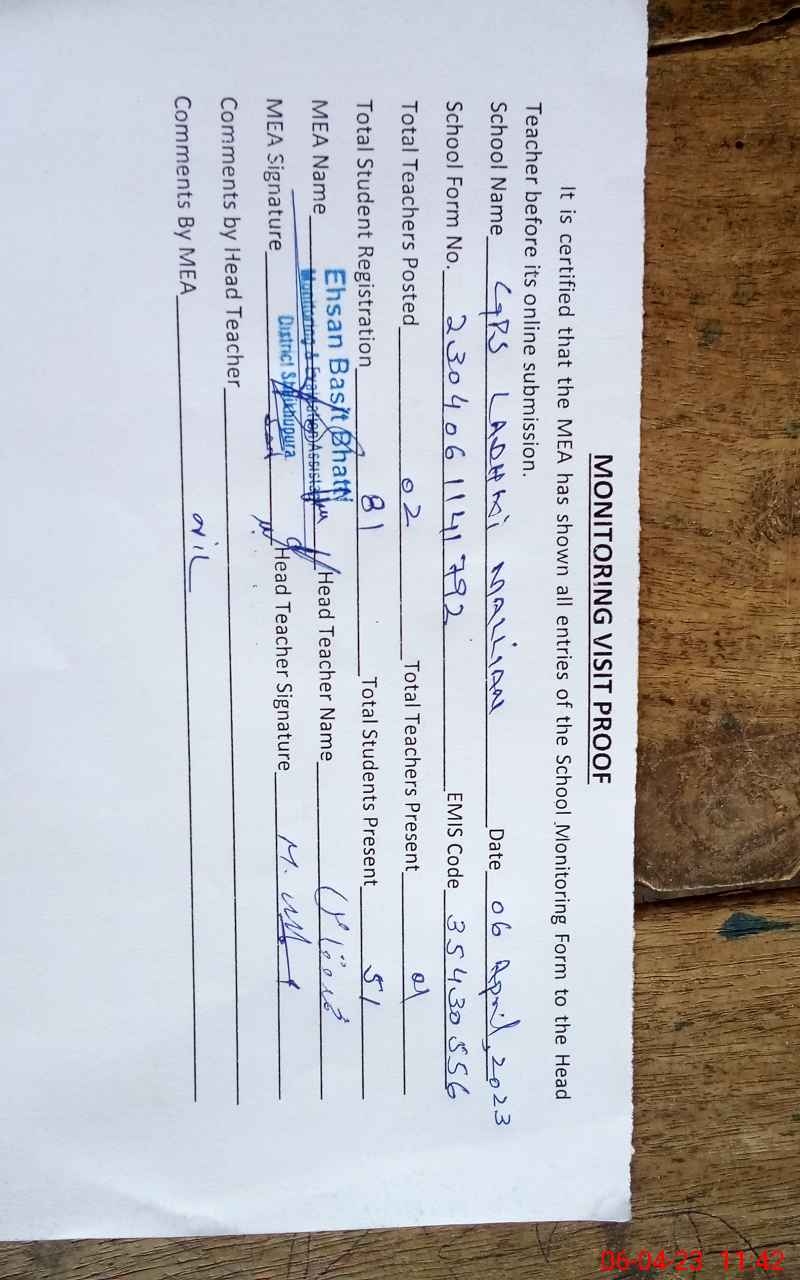 MONITORING VISIT PROOF
It is certified that the MEA has shown all entries of the School Monitoring Form to the Head
Teacher before its online submission.
School Name GPS LADHKI MALLIAN Date 06 April, 2023
School Form No. 2304061141792 EMIS Code 35430556
Total Teachers Posted 02 Total Teachers Present 01
Total Student Registration 81 Total Students Present 51
Ehsan Basit Bhatti
MEA Name Head Teacher Name
Monitoring & Evaluation Assistant
District Sheikhupura
MEA Signature Head Teacher Signature
Comments by Head Teacher
Comments By MEA Nil
06-04-23 11:42